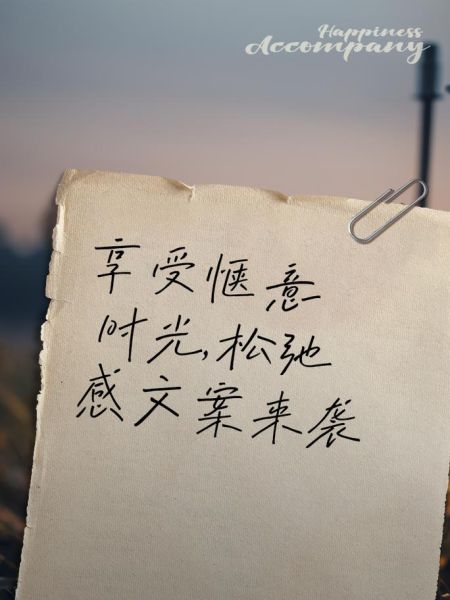 Happiness
Accompany
享受惬意
时光,松弛
感文案来袭